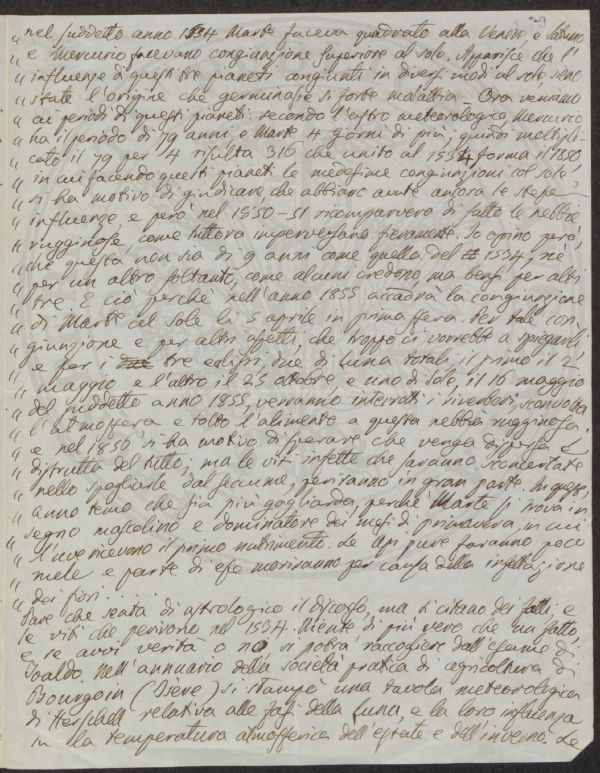 " nel suddetto anno 1534 Marte faceva quadrato alla Venere, e Saturno
" e Mercurio facevano congiunzione superiore al sole. Apparisce che l'
" influenze di questi tre pianeti congiunti in diversi modi al sole, sieno
" state l'origine che germinasse si forte malattia _ Ora veniamo
" ai periodi di questi pianeti: secondo l'astro meteorologico, Mercurio
" ha il periodo di 79 anni e Marte 4 giorni di più; quindi moltipli-
" cato il 79 per 4 risulta 316 che unito al 1534 forma il 1850
" in cui facendo questi pianeti le medesime congiunzioni col sole,
" vi ha motivo di giudicare, che abbiano avute ancora le stesse
" influenze e però nel 1850-51 ricomparvero di fatto le nebbie
" rugginose, come tuttora imperversano fieramente. Io opino però,
" che questa non sia di 9 anni come quella del 1534, nè
" per un altro soltanto, come alcuni credono, ma bensì per altri
" tre. E ciò perchè nell'anno 1855 accadrà la congiunzione
" di Marte col Sole li 5 aprile in prima sfera. Per tale con-
" giunzione e per altri aspetti, che troppo ci vorrebbe a spiegarli
" e per i tre eclissi, due di Luna totali, il primo il 2
" maggio e l'altro il 25 ottobre, e uno di Sole, il 16 maggio
" del suddetto anno 1855, verranno interrati i viventi, sconvolta
" l'atmosfera e tolto l'alimento a questa nebbia rugginosa,
" e nel 1856 vi ha motivo di sperare che venga dispersa e
" distrutta del tutto, ma le viti infette che saranno sconcertate
" nello spogliarle dal seccume, periranno in gran parte. In questo
" anno temo che sia più gagliarda, perchè Marte si trova in
" segno mascolino e dominatore dei mesi di primavera, in cui
" l'uve ricevono il primo nutrimento. Le Api pure faranno poco
" mele e parte di esse moriranno per causa della infettazione
" dei fiori.....
Pare che senta di astrologico il discorso, ma si citano dei fatti, e
le viti che perirono nel 1534. Niente di più vero che un fatto,
e se avvi verità o nò, si potrà raccogliere dall'esame di
Toaldo. Nell'annuario della Società pratica di agricoltura di
Bourgoin (Isère) si stampò una tavola meteorologica
di Herschell relativa alle fasi della Luna, e la loro influenza
su la temperatura atmosferica dell'estate e dell'inverno. Le